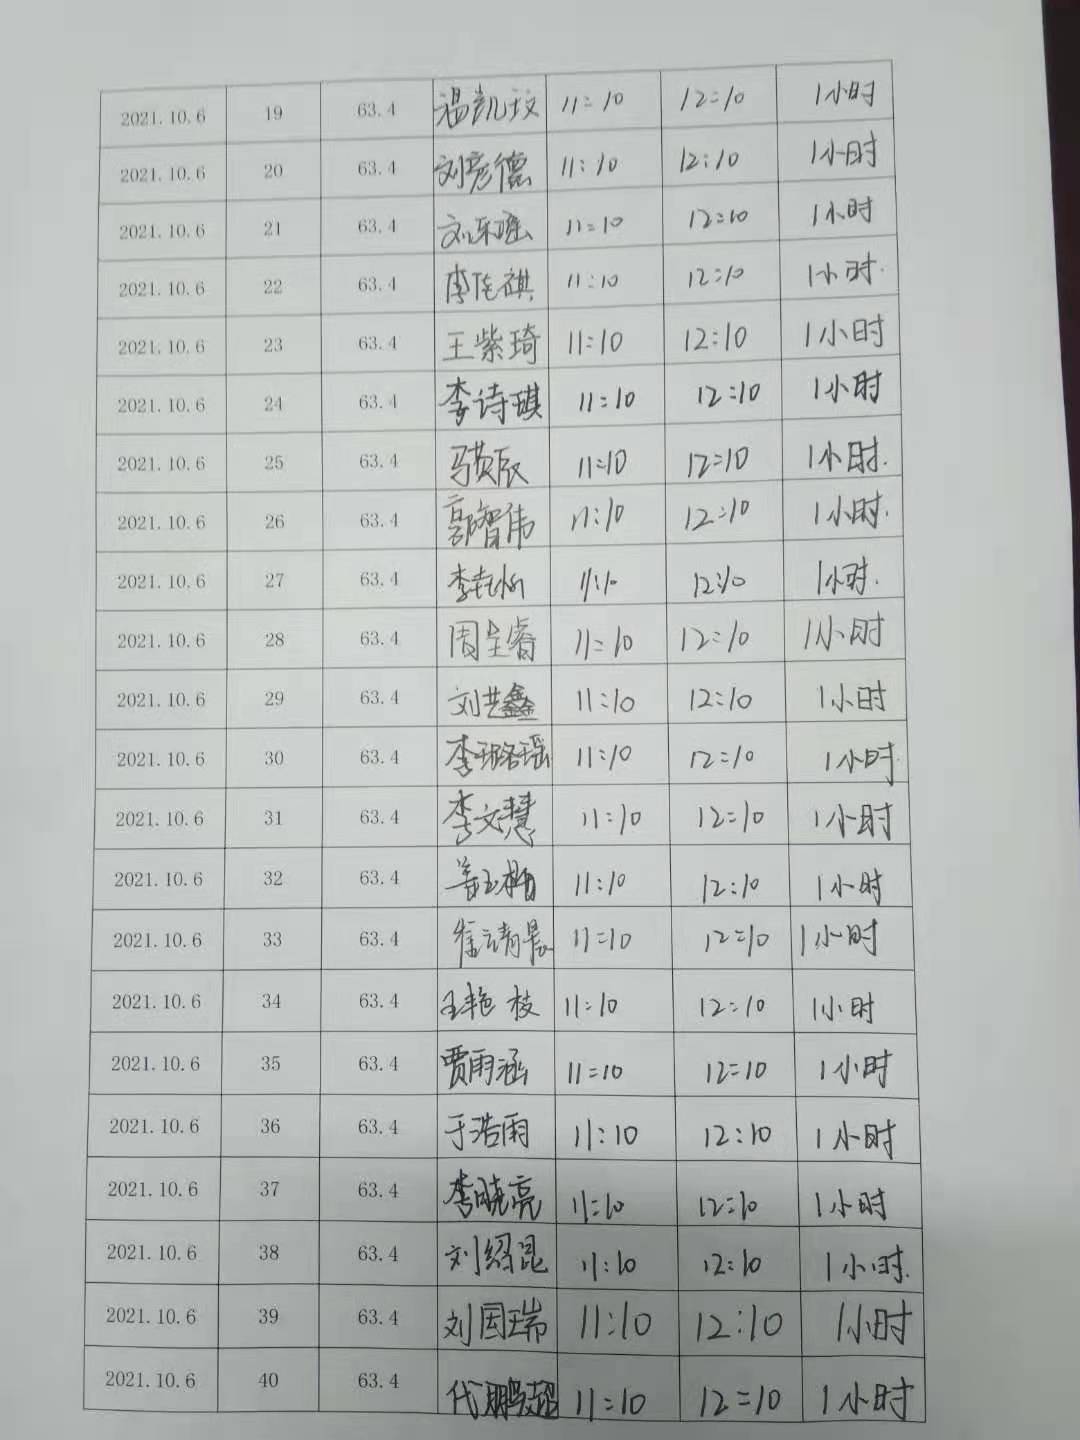 2021.10.6 19 63.4 温凯玟 11:10 12:10 1小时
2021.10.6 20 63.4 刘彦德 11:10 12:10 1小时
2021.10.6 21 63.4 刘乐瑶 11:10 12:10 1小时
2021.10.6 22 63.4 李佳祺 11:10 12:10 1小时.
2021.10.6 23 63.4 王紫琦 11:10 12:10 1小时
2021.10.6 24 63.4 李诗琪 11:10 12:10 1小时
2021.10.6 25 63.4 11:10 12:10 1小时.
2021.10.6 26 63.4 郭智伟 11:10 12:10 1小时.
2021.10.6 27 63.4 11:10 12:10 1小时.
2021.10.6 28 63.4 周呈睿 11:10 12:10 1小时
2021.10.6 29 63.4 刘艺鑫 11:10 12:10 1小时
2021.10.6 30 63.4 李璐瑶 11:10 12:10 1小时
2021.10.6 31 63.4 李文慧 11:10 12:10 1小时
2021.10.6 32 63.4 11:10 12:10 1小时
2021.10.6 33 63.4 11:10 12:10 1小时
2021.10.6 34 63.4 王艳枝 11:10 12:10 1小时
2021.10.6 35 63.4 贾雨涵 11:10 12:10 1小时
2021.10.6 36 63.4 于浩雨 11:10 12:10 1小时
2021.10.6 37 63.4 李晓亮 11:10 12:10 1小时
2021.10.6 38 63.4 刘绍昆 11:10 12:10 1小时.
2021.10.6 39 63.4 刘国瑞 11:10 12:10 1小时
2021.10.6 40 63.4 代鹏超 11:10 12:10 1小时